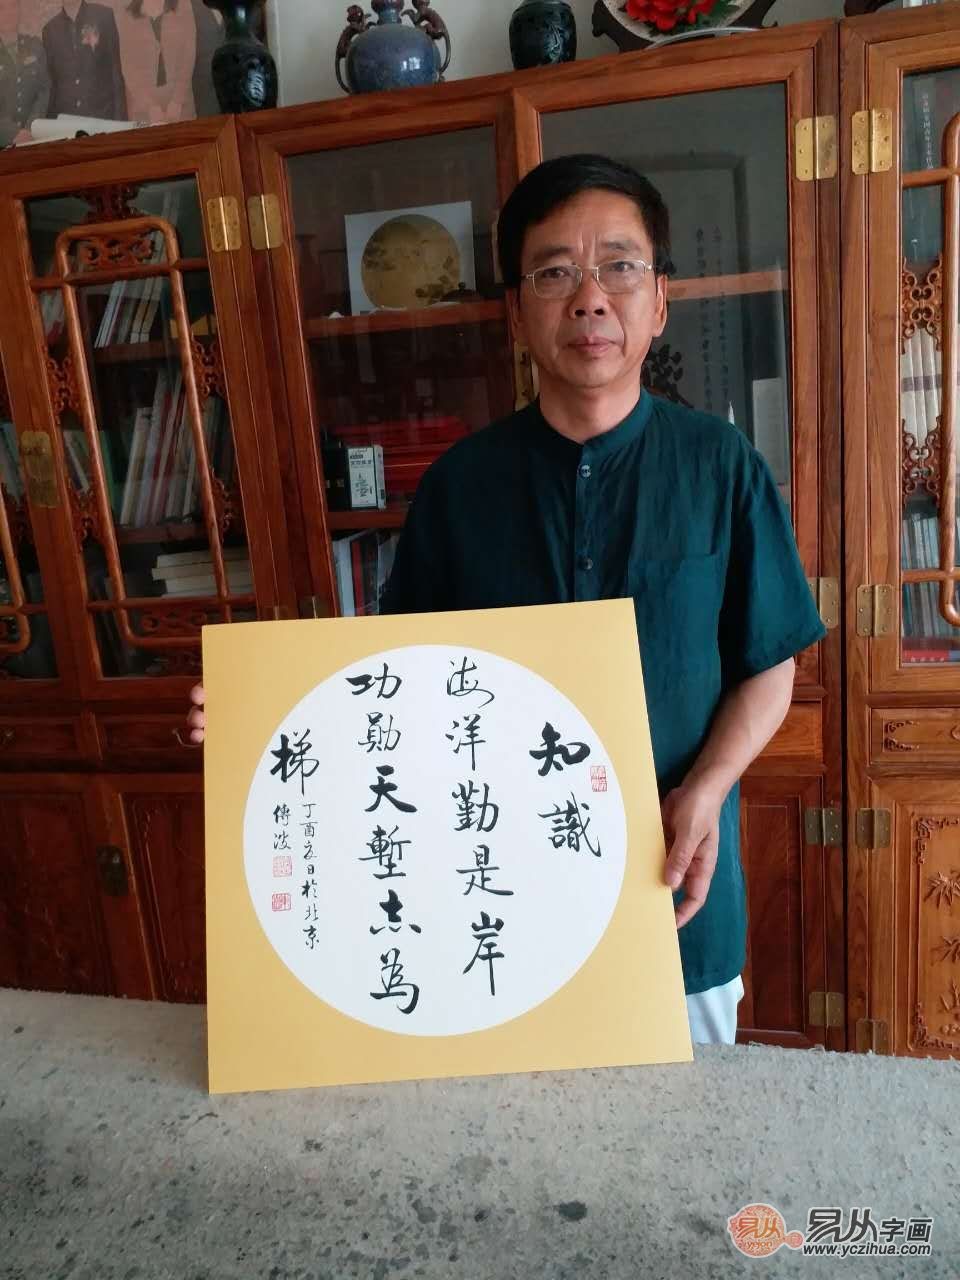 知識
海洋勤是岸
功勋天塹志為
梯
丁酉夏日於北京
傳波
易从
易从字画
www.yczihua.com